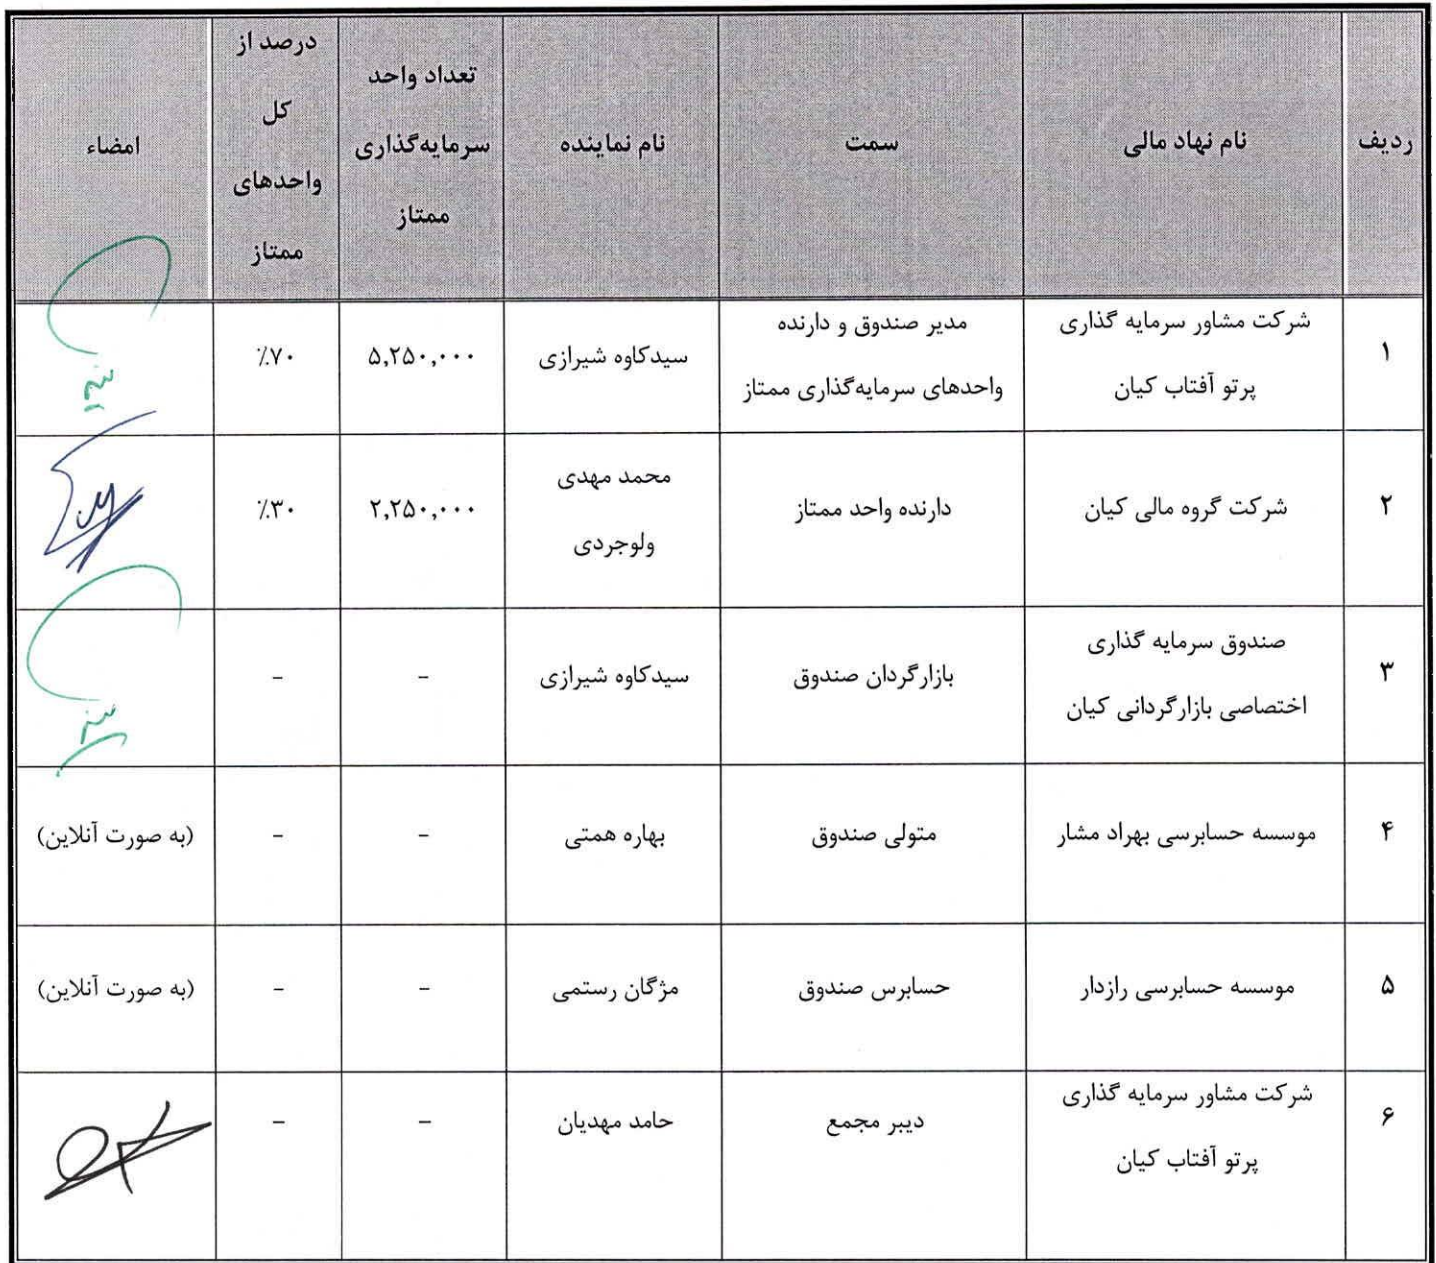 ردیف
نام نهاد مالی
سمت
نام نماینده
تعداد واحد
سرمایه‌گذاری
ممتاز
درصد از
کل
واحدهای
ممتاز
امضاء
۱
شرکت مشاور سرمایه گذاری
پرتو آفتاب کیان
مدیر صندوق و دارنده
واحدهای سرمایه‌گذاری ممتاز
سیدکاوه شیرازی
۵,۲۵۰,۰۰۰
٪۷۰
۲
شرکت گروه مالی کیان
دارنده واحد ممتاز
محمد مهدی
ولوجردی
۲,۲۵۰,۰۰۰
٪۳۰
۳
صندوق سرمایه گذاری
اختصاصی بازارگردانی کیان
بازارگردان صندوق
سیدکاوه شیرازی
-
-
۴
موسسه حسابرسی بهراد مشار
متولی صندوق
بهاره همتی
-
-
(به صورت آنلاین)
۵
موسسه حسابرسی رازدار
حسابرس صندوق
مژگان رستمی
-
-
(به صورت آنلاین)
۶
شرکت مشاور سرمایه گذاری
پرتو آفتاب کیان
دبیر مجمع
حامد مهدیان
-
-